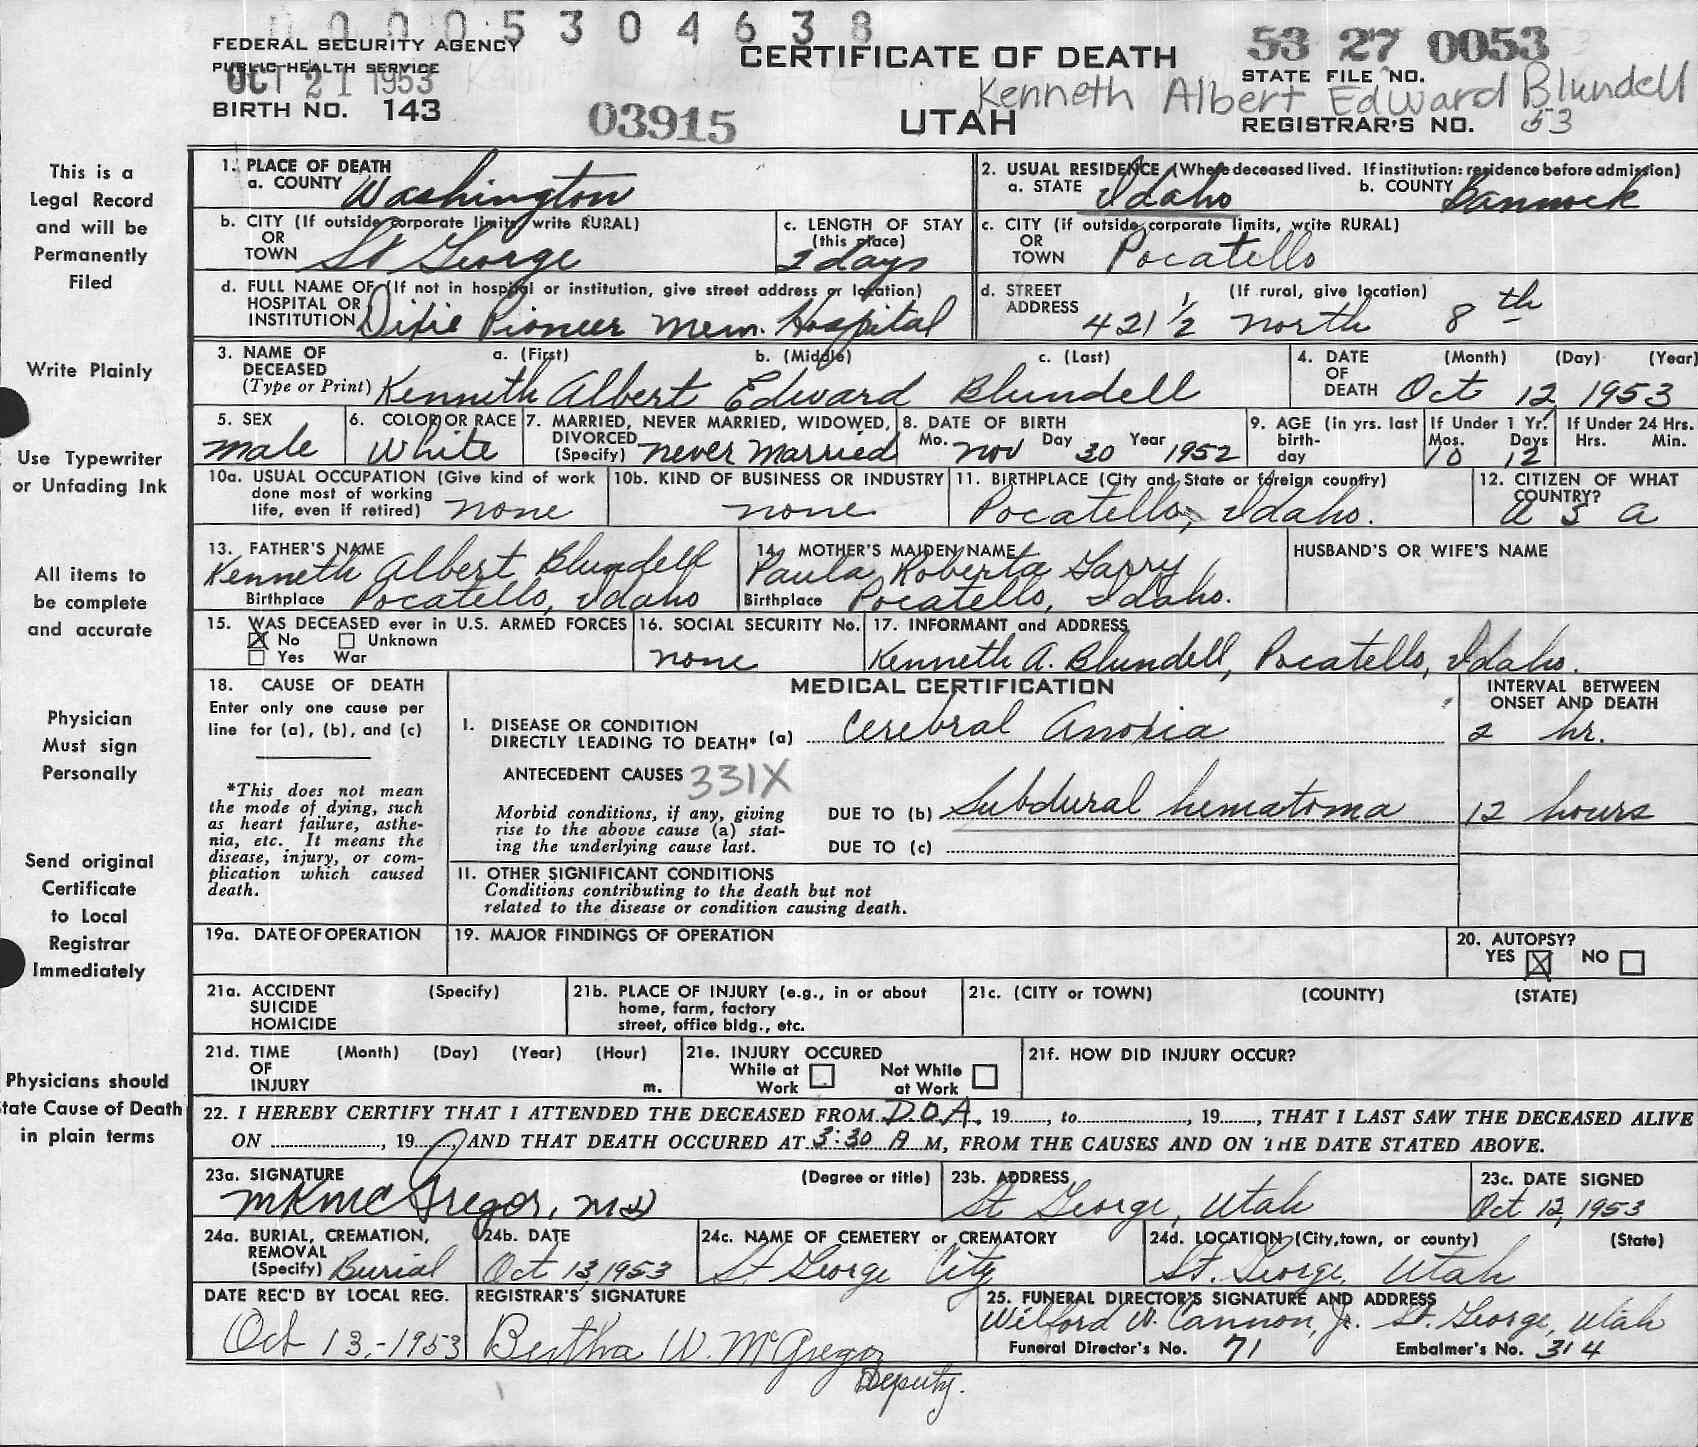 0005304638
FEDERAL SECURITY AGENCY
PUBLIC HEALTH SERVICE
OCT 21 1953
BIRTH NO. 143
03915
CERTIFICATE OF DEATH
UTAH
53 27 0053
STATE FILE NO.
Kenneth Albert Edward Blundell
REGISTRAR'S NO. 53
This is a
Legal Record
and will be
Permanently
Filed
Write Plainly
Use Typewriter
or Unfading Ink
All items to
be complete
and accurate
Physician
Must sign
Personally
Send original
Certificate
to Local
Registrar
Immediately
Physicians should
tate Cause of Death
in plain terms
1. PLACE OF DEATH
a. COUNTY Washington
2. USUAL RESIDENCE (Where deceased lived. If institution: residence before admission)
a. STATE Idaho b. COUNTY Bannock
b. CITY (If outside corporate limits, write RURAL)
OR
TOWN St George
c. LENGTH OF STAY
(this place)
2 days
c. CITY (if outside corporate limits, write RURAL)
OR
TOWN Pocatello
d. FULL NAME OF (If not in hospital or institution, give street address or location)
HOSPITAL OR
INSTITUTION Dixie Pioneer Mem. Hospital
d. STREET (If rural, give location)
ADDRESS 421 1/2 North 8th
3. NAME OF a. (First) b. (Middle) c. (Last)
DECEASED
(Type or Print) Kenneth Albert Edward Blundell
4. DATE (Month) (Day) (Year)
OF
DEATH Oct 12, 1953
5. SEX
male
6. COLOR OR RACE
White
7. MARRIED, NEVER MARRIED, WIDOWED,
DIVORCED
(Specify) never married
8. DATE OF BIRTH
Mo. Nov Day 30 Year 1952
9. AGE (in yrs. last
birth-
day
If Under 1 Yr.
Mos. Days
10 12
If Under 24 Hrs.
Hrs. Min.
10a. USUAL OCCUPATION (Give kind of work
done most of working
life, even if retired) none
10b. KIND OF BUSINESS OR INDUSTRY
none
11. BIRTHPLACE (City and State or foreign country)
Pocatello, Idaho.
12. CITIZEN OF WHAT
COUNTRY?
U S A
13. FATHER'S NAME
Kenneth Albert Blundell
Birthplace Pocatello, Idaho
14. MOTHER'S MAIDEN NAME
Paula Roberta Garry
Birthplace Pocatello, Idaho.
HUSBAND'S OR WIFE'S NAME
15. WAS DECEASED ever in U.S. ARMED FORCES
X No Unknown
Yes War
16. SOCIAL SECURITY No.
none
17. INFORMANT and ADDRESS
Kenneth A. Blundell, Pocatello, Idaho.
18. CAUSE OF DEATH
Enter only one cause per
line for (a), (b), and (c)
*This does not mean
the mode of dying, such
as heart failure, asthe-
nia, etc. It means the
disease, injury, or com-
plication which caused
death.
MEDICAL CERTIFICATION
INTERVAL BETWEEN
ONSET AND DEATH
I. DISEASE OR CONDITION
DIRECTLY LEADING TO DEATH* (a) Cerebral Anoxia 2 hr.
ANTECEDENT CAUSES 331X
Morbid conditions, if any, giving
rise to the above cause (a) stat-
ing the underlying cause last.
DUE TO (b) Subdural hematoma 12 hours
DUE TO (c)
II. OTHER SIGNIFICANT CONDITIONS
Conditions contributing to the death but not
related to the disease or condition causing death.
19a. DATE OF OPERATION
19. MAJOR FINDINGS OF OPERATION
20. AUTOPSY?
YES X NO
21a. ACCIDENT (Specify)
SUICIDE
HOMICIDE
21b. PLACE OF INJURY (e.g., in or about
home, farm, factory
street, office bldg., etc.
21c. (CITY or TOWN) (COUNTY) (STATE)
21d. TIME (Month) (Day) (Year) (Hour)
OF
INJURY m.
21e. INJURY OCCURED
While at Work
Not While at Work
21f. HOW DID INJURY OCCUR?
22. I HEREBY CERTIFY THAT I ATTENDED THE DECEASED FROM D.O.A., 19...., to...., 19...., THAT I LAST SAW THE DECEASED ALIVE
ON ...., 19.... AND THAT DEATH OCCURED AT 3:30 A M, FROM THE CAUSES AND ON THE DATE STATED ABOVE.
23a. SIGNATURE (Degree or title)
M K McGregor, MD
23b. ADDRESS
St George, Utah
23c. DATE SIGNED
Oct 12, 1953
24a. BURIAL, CREMATION,
REMOVAL
(Specify) Burial
24b. DATE
Oct 13, 1953
24c. NAME OF CEMETERY or CREMATORY
St George City
24d. LOCATION (City, town, or county) (State)
St. George, Utah
DATE REC'D BY LOCAL REG.
Oct 13, -1953
REGISTRAR'S SIGNATURE
Bertha W. McGregor
Deputy.
25. FUNERAL DIRECTOR'S SIGNATURE AND ADDRESS
Wilford W. Cannon, Jr. St. George, Utah
Funeral Director's No. 71 Embalmer's No. 314